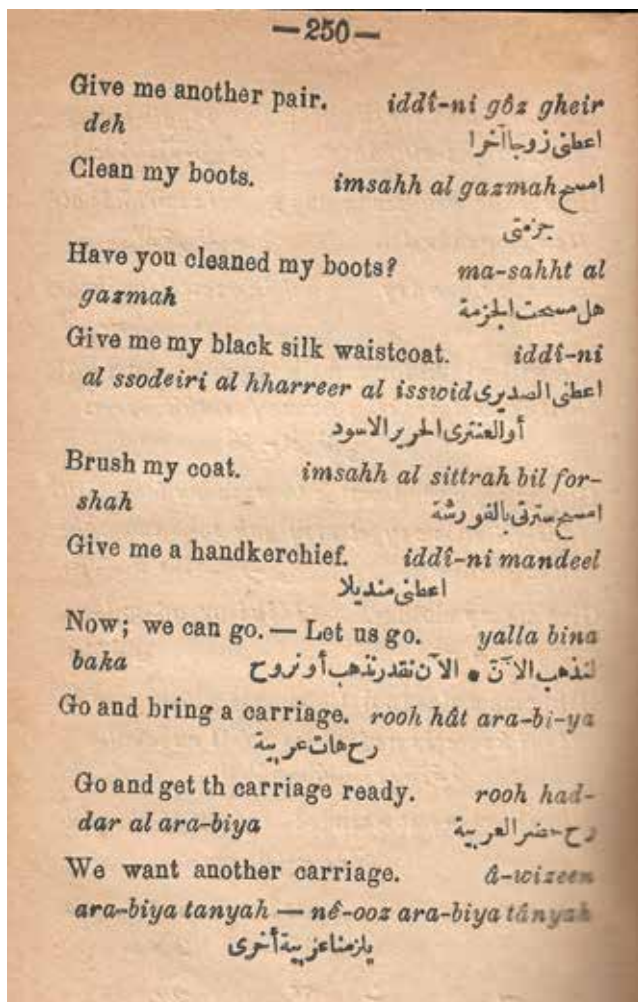 —250—
Give me another pair. iddî-ni gôz gheir
deh اعطنى زوجا آخرا
Clean my boots. imsahh al gazmah امسح
جزمتى
Have you cleaned my boots? ma-sahht al
gazmah هل مسحت الجزمة
Give me my black silk waistcoat. iddî-ni
al ssodeiri al hharreer al isswid اعطنى الصديرى
أوالعنترى الحرير الاسود
Brush my coat. imsahh al sittrah bil for-
shah امسح سترتى بالفورشة
Give me a handkerchief. iddî-ni mandeel
اعطنى منديلا
Now; we can go. — Let us go. yalla bina
baka لنذهب الآن • الآن نقدر نذهب أو نروح
Go and bring a carriage. rooh hât ara-bi-ya
رح هات عربية
Go and get th carriage ready. rooh had-
dar al ara-biya رح حضر العربية
We want another carriage. â-wizeen
ara-biya tanyah — nê-ooz ara-biya tânyah
يلزمنا عربية أخرى